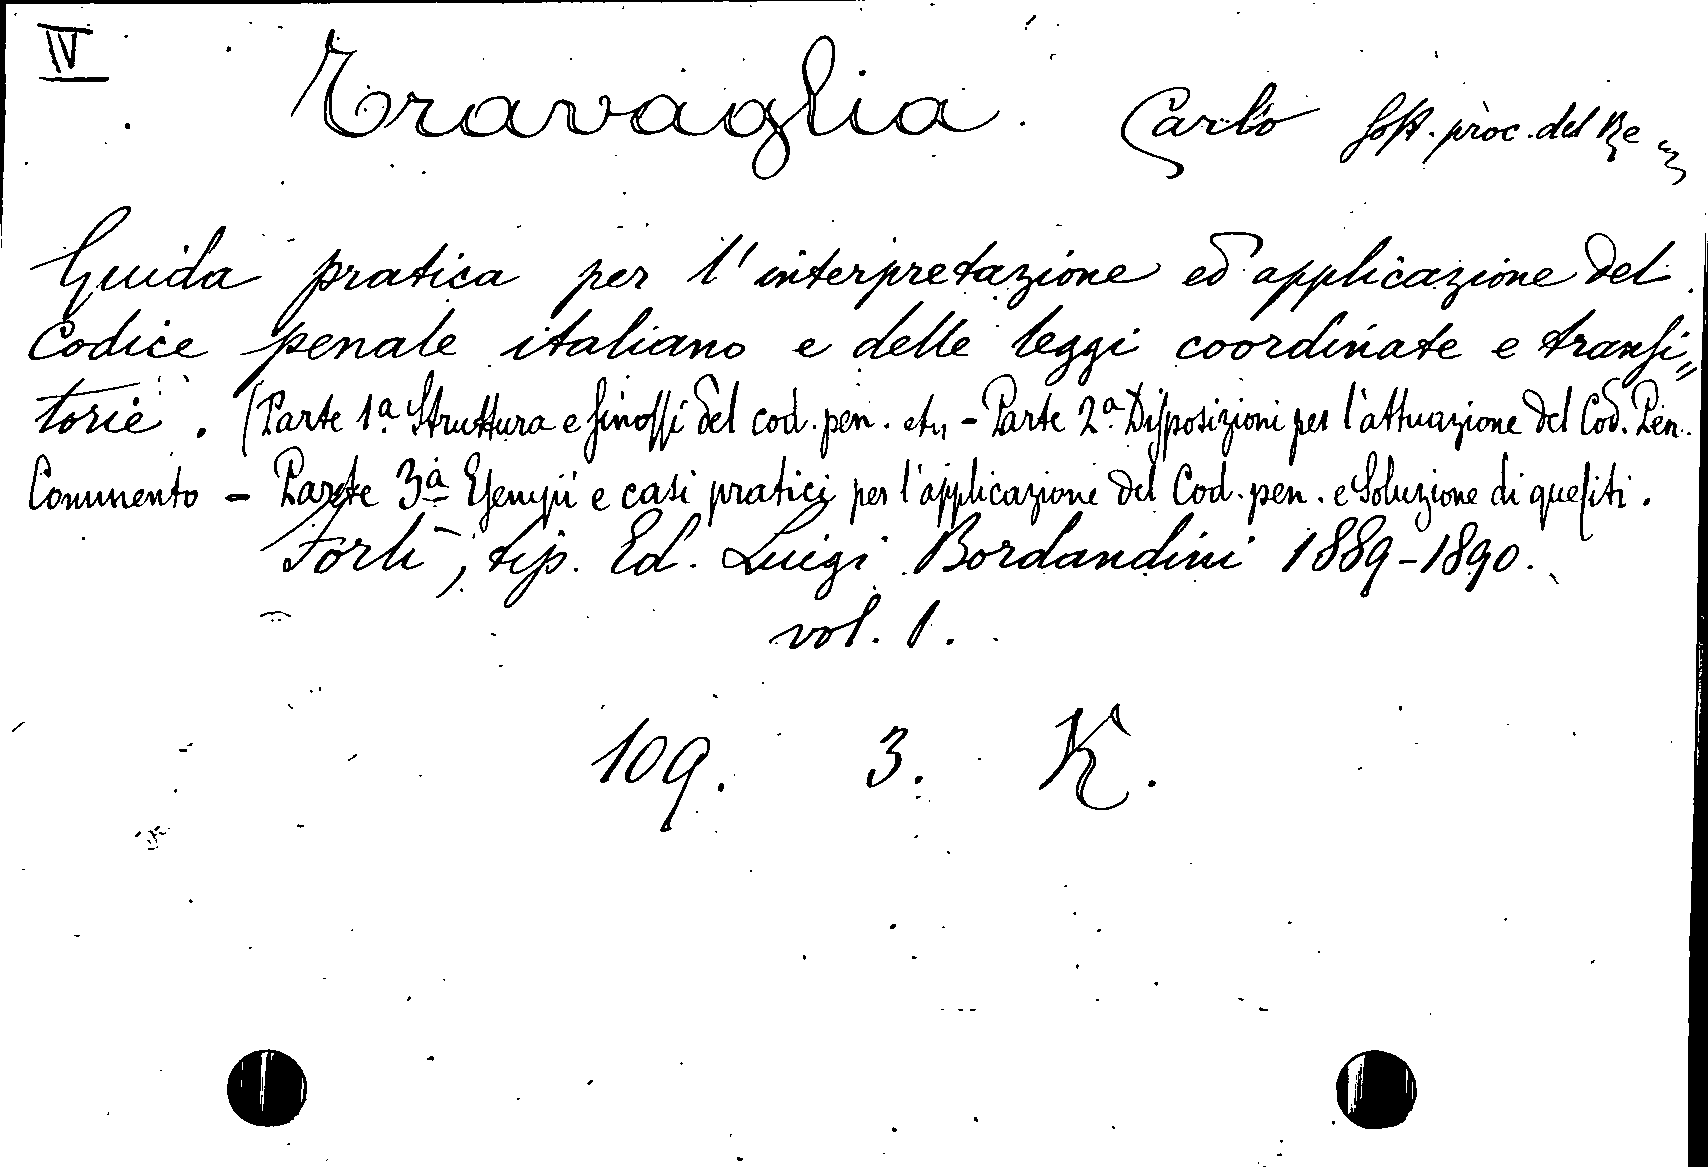 IV
Travaglia Carlo Sost. proc. del Re
Guida pratica per l'interpretazione ed applicazione del
Codice penale italiano e delle leggi coordinate e transi=
torie. (Parte 1ª Struttura e sinossi del cod. pen. etc, - Parte 2ª Disposizioni per l'attuazione del Cod. Pen.
Commento - Parte 3ª Esempii e casi pratici per l'applicazione del Cod. pen. e Soluzione di quesiti.
Forlì, tip. Ed. Luigi Bordandini 1889-1890.
vol. 1.
109. 3. K.